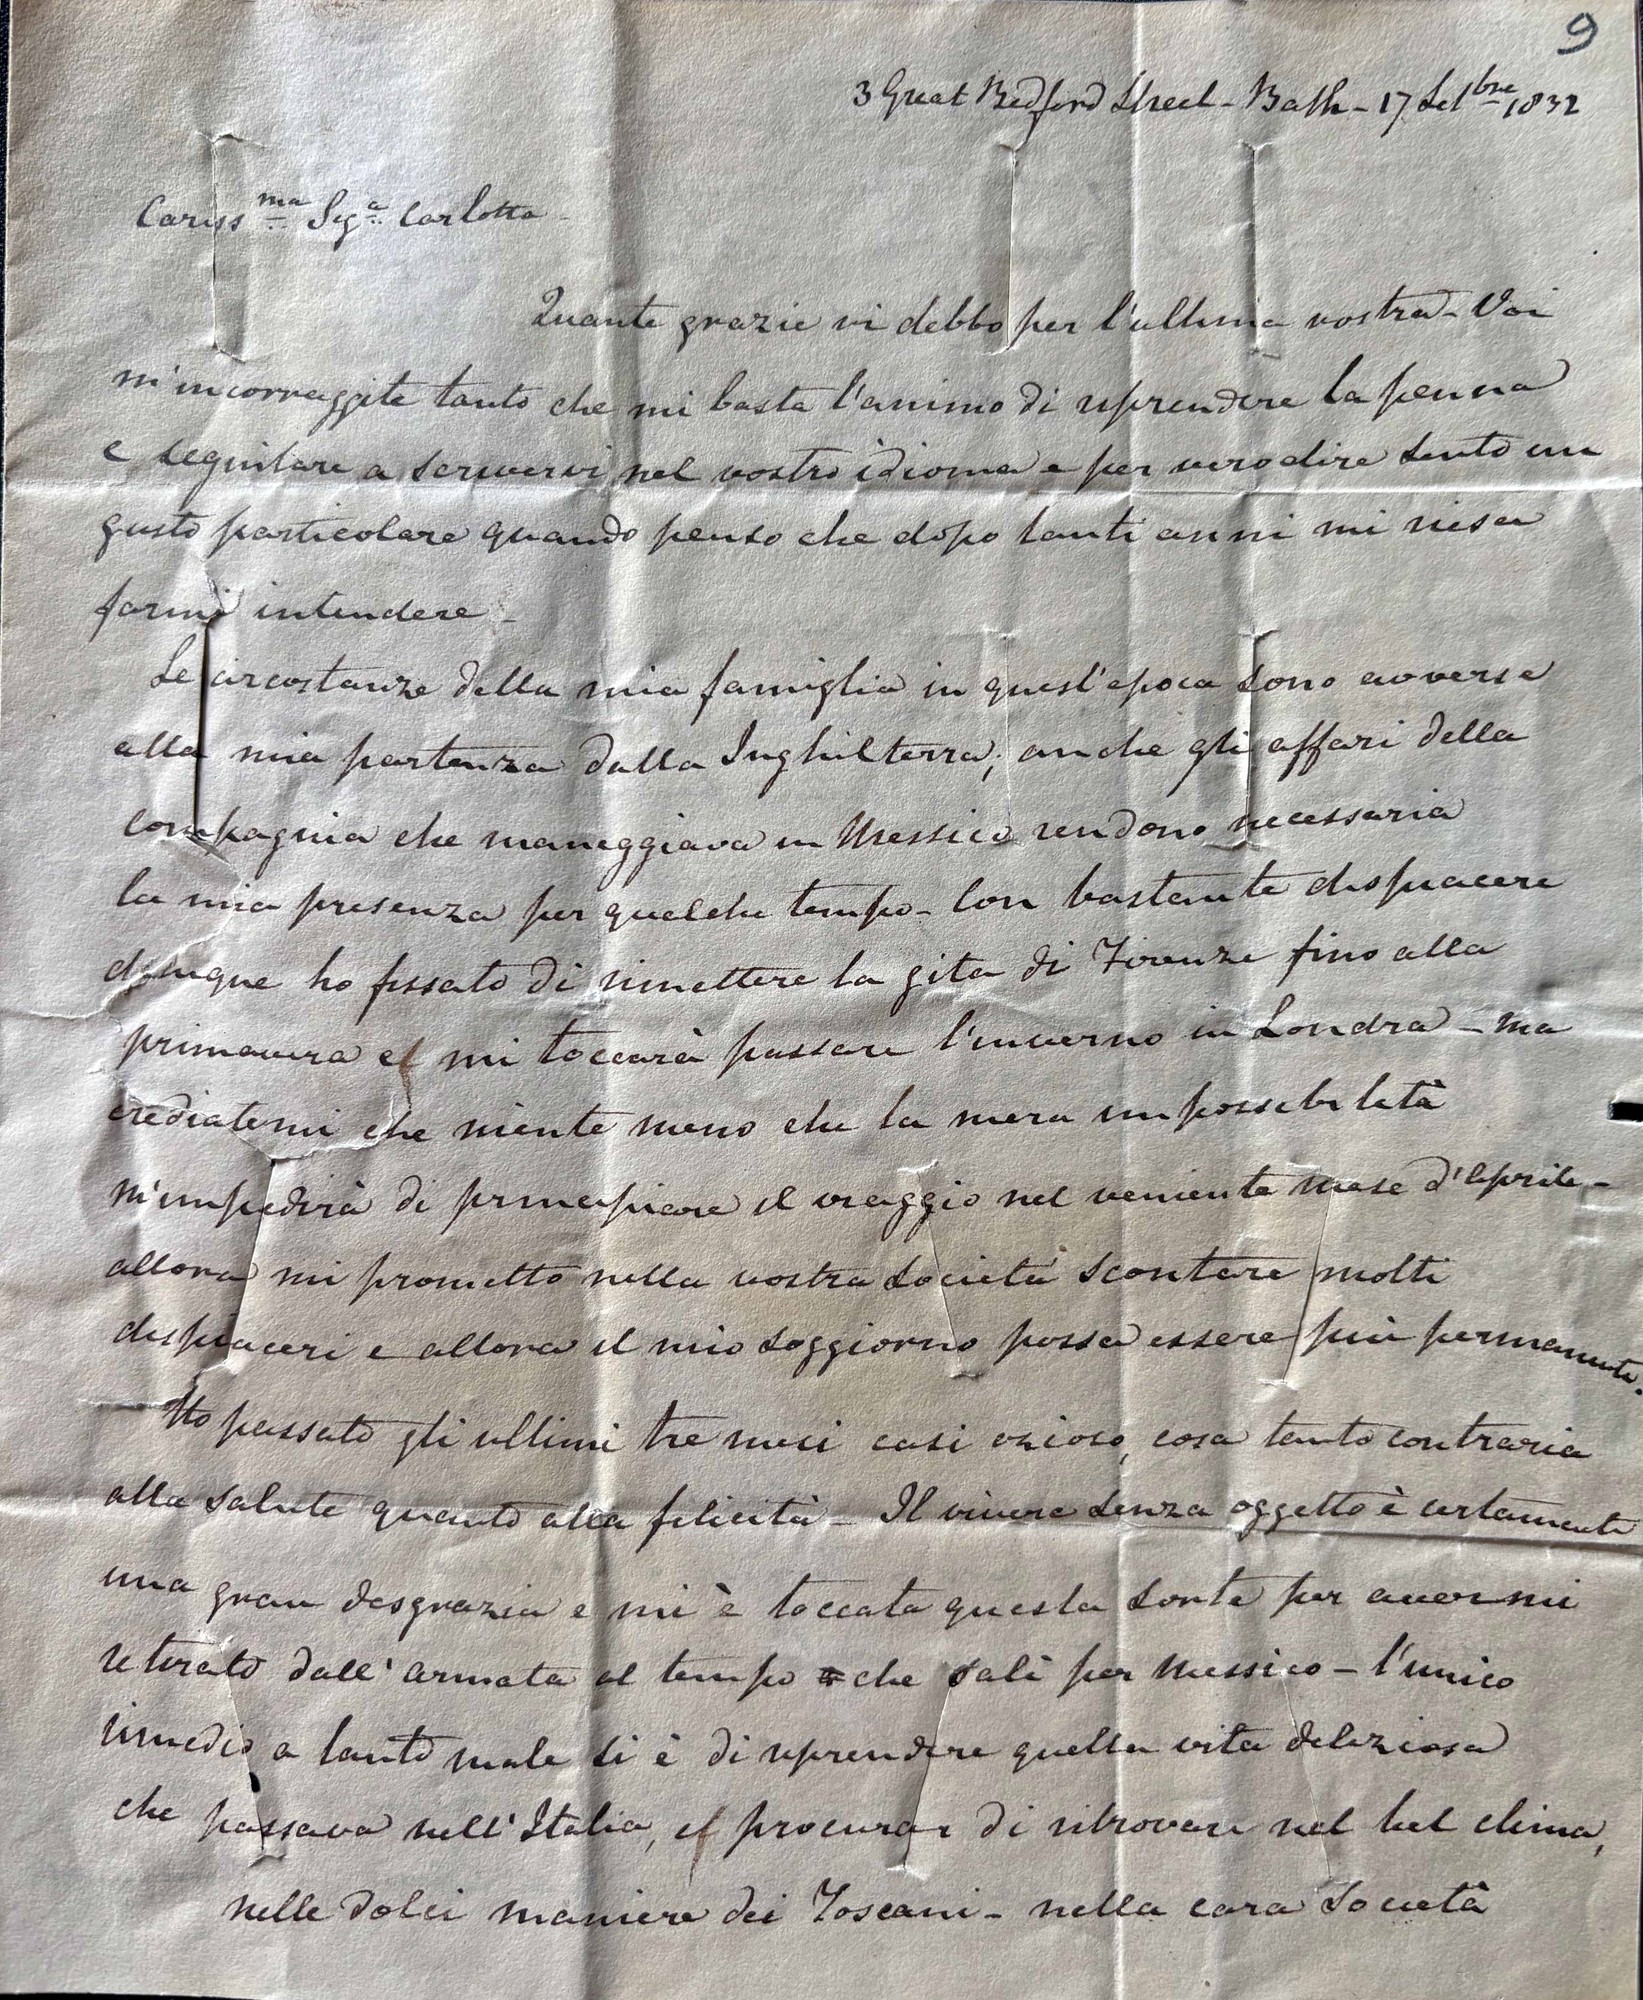 9
3 Great Bedford Street - Bath - 17 Setbre 1832
Cariss.ma Sig.a Carlotta -
Quante grazie vi debbo per l'ultima vostra - Voi
m'incorraggite tanto che mi basta l'animo di riprendere la penna
e seguitare a scrivervi nel vostro idioma e per vero dire sento un
gusto particolare quando penso che dopo tanti anni mi riesa
farmi intendere -
Le circostanze della mia famiglia in quest'epoca sono avverse
alla mia partenza dalla Inghilterra, anche gli affari della
compagnia che maneggiava in Messico rendono necessaria
la mia presenza per qualche tempo - Con bastante dispiacere
dunque ho fissato di rimettere la gita di Firenze fino alla
primavera e mi toccarà passare l'inverno in Londra - ma
crediatemi che niente meno che la mera impossibilità
m'impedirà di principiare il viaggio nel veniente mese d'Aprile -
allora mi prometto nella vostra società scontare molti
dispiaceri e allora il mio soggiorno possa essere più permanente.
Ho passato gli ultimi tre mesi casi ozioso, cosa tanto contraria
alla salute quanto alla felicità - Il vivere senza oggetto è certamente
una gran desgrazia e mi è toccata questa sorte per avermi
retirato dall'armata al tempo che salì per Messico - l'unico
rimedio a tanto male si è di riprendere quella vita deliziosa
che passava nell'Italia, e procurar di ritrovare nel bel clima,
nelle dolci maniere dei Toscani - nella cara Società